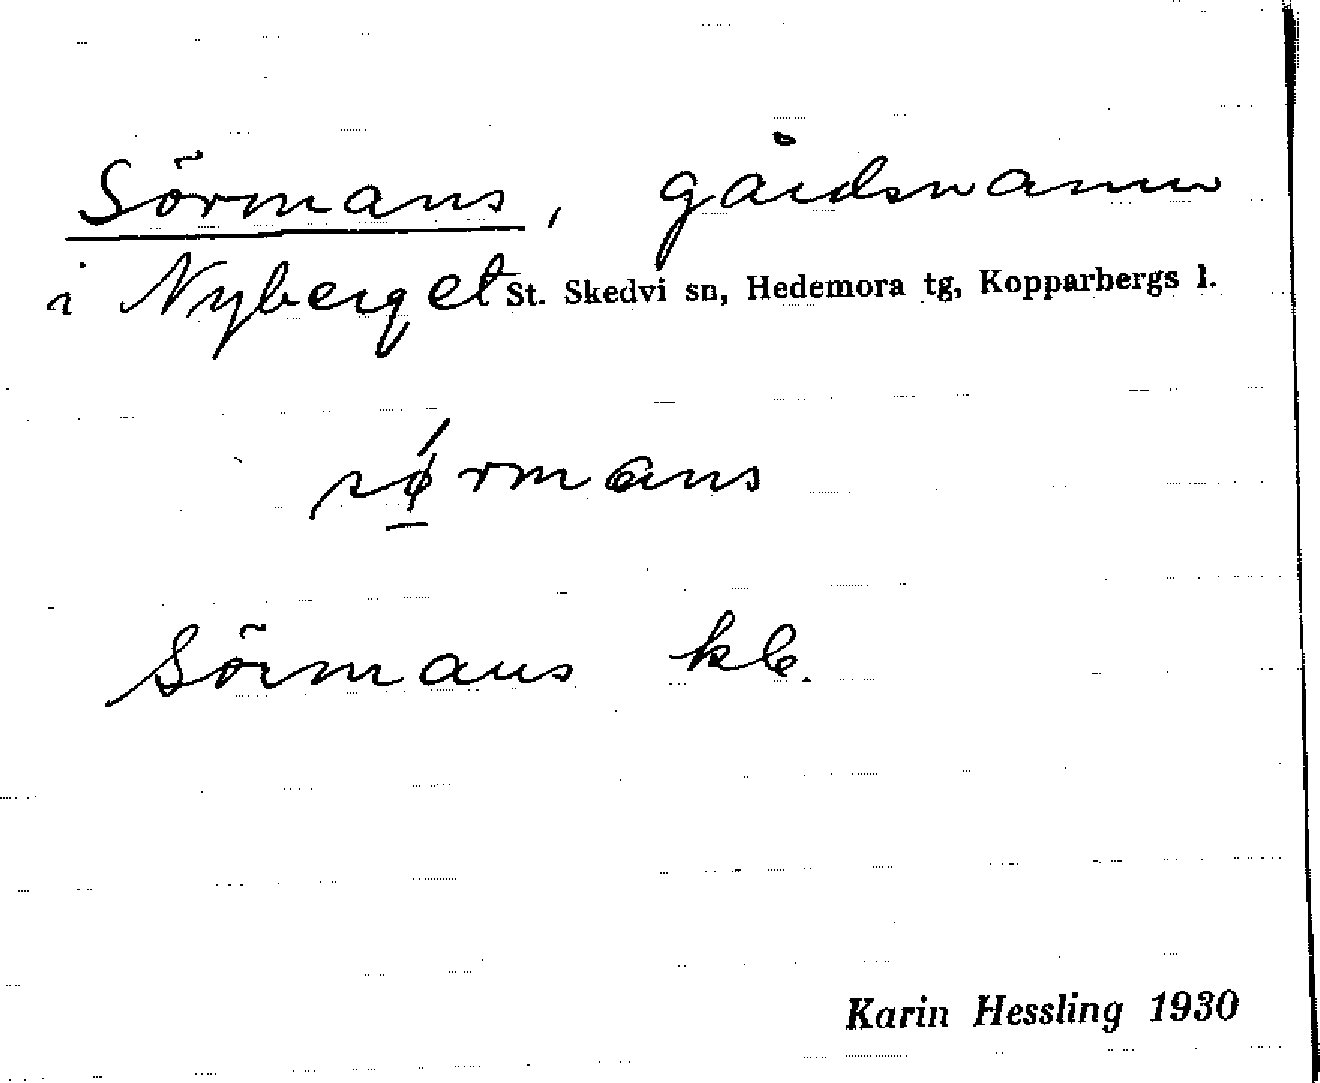 Sörmans, gårdsnamn
i Nyberget St. Skedvi sn, Hedemora tg, Kopparbergs l.
sǿ̱rmans
Sörmans kb.
Karin Hessling 1930